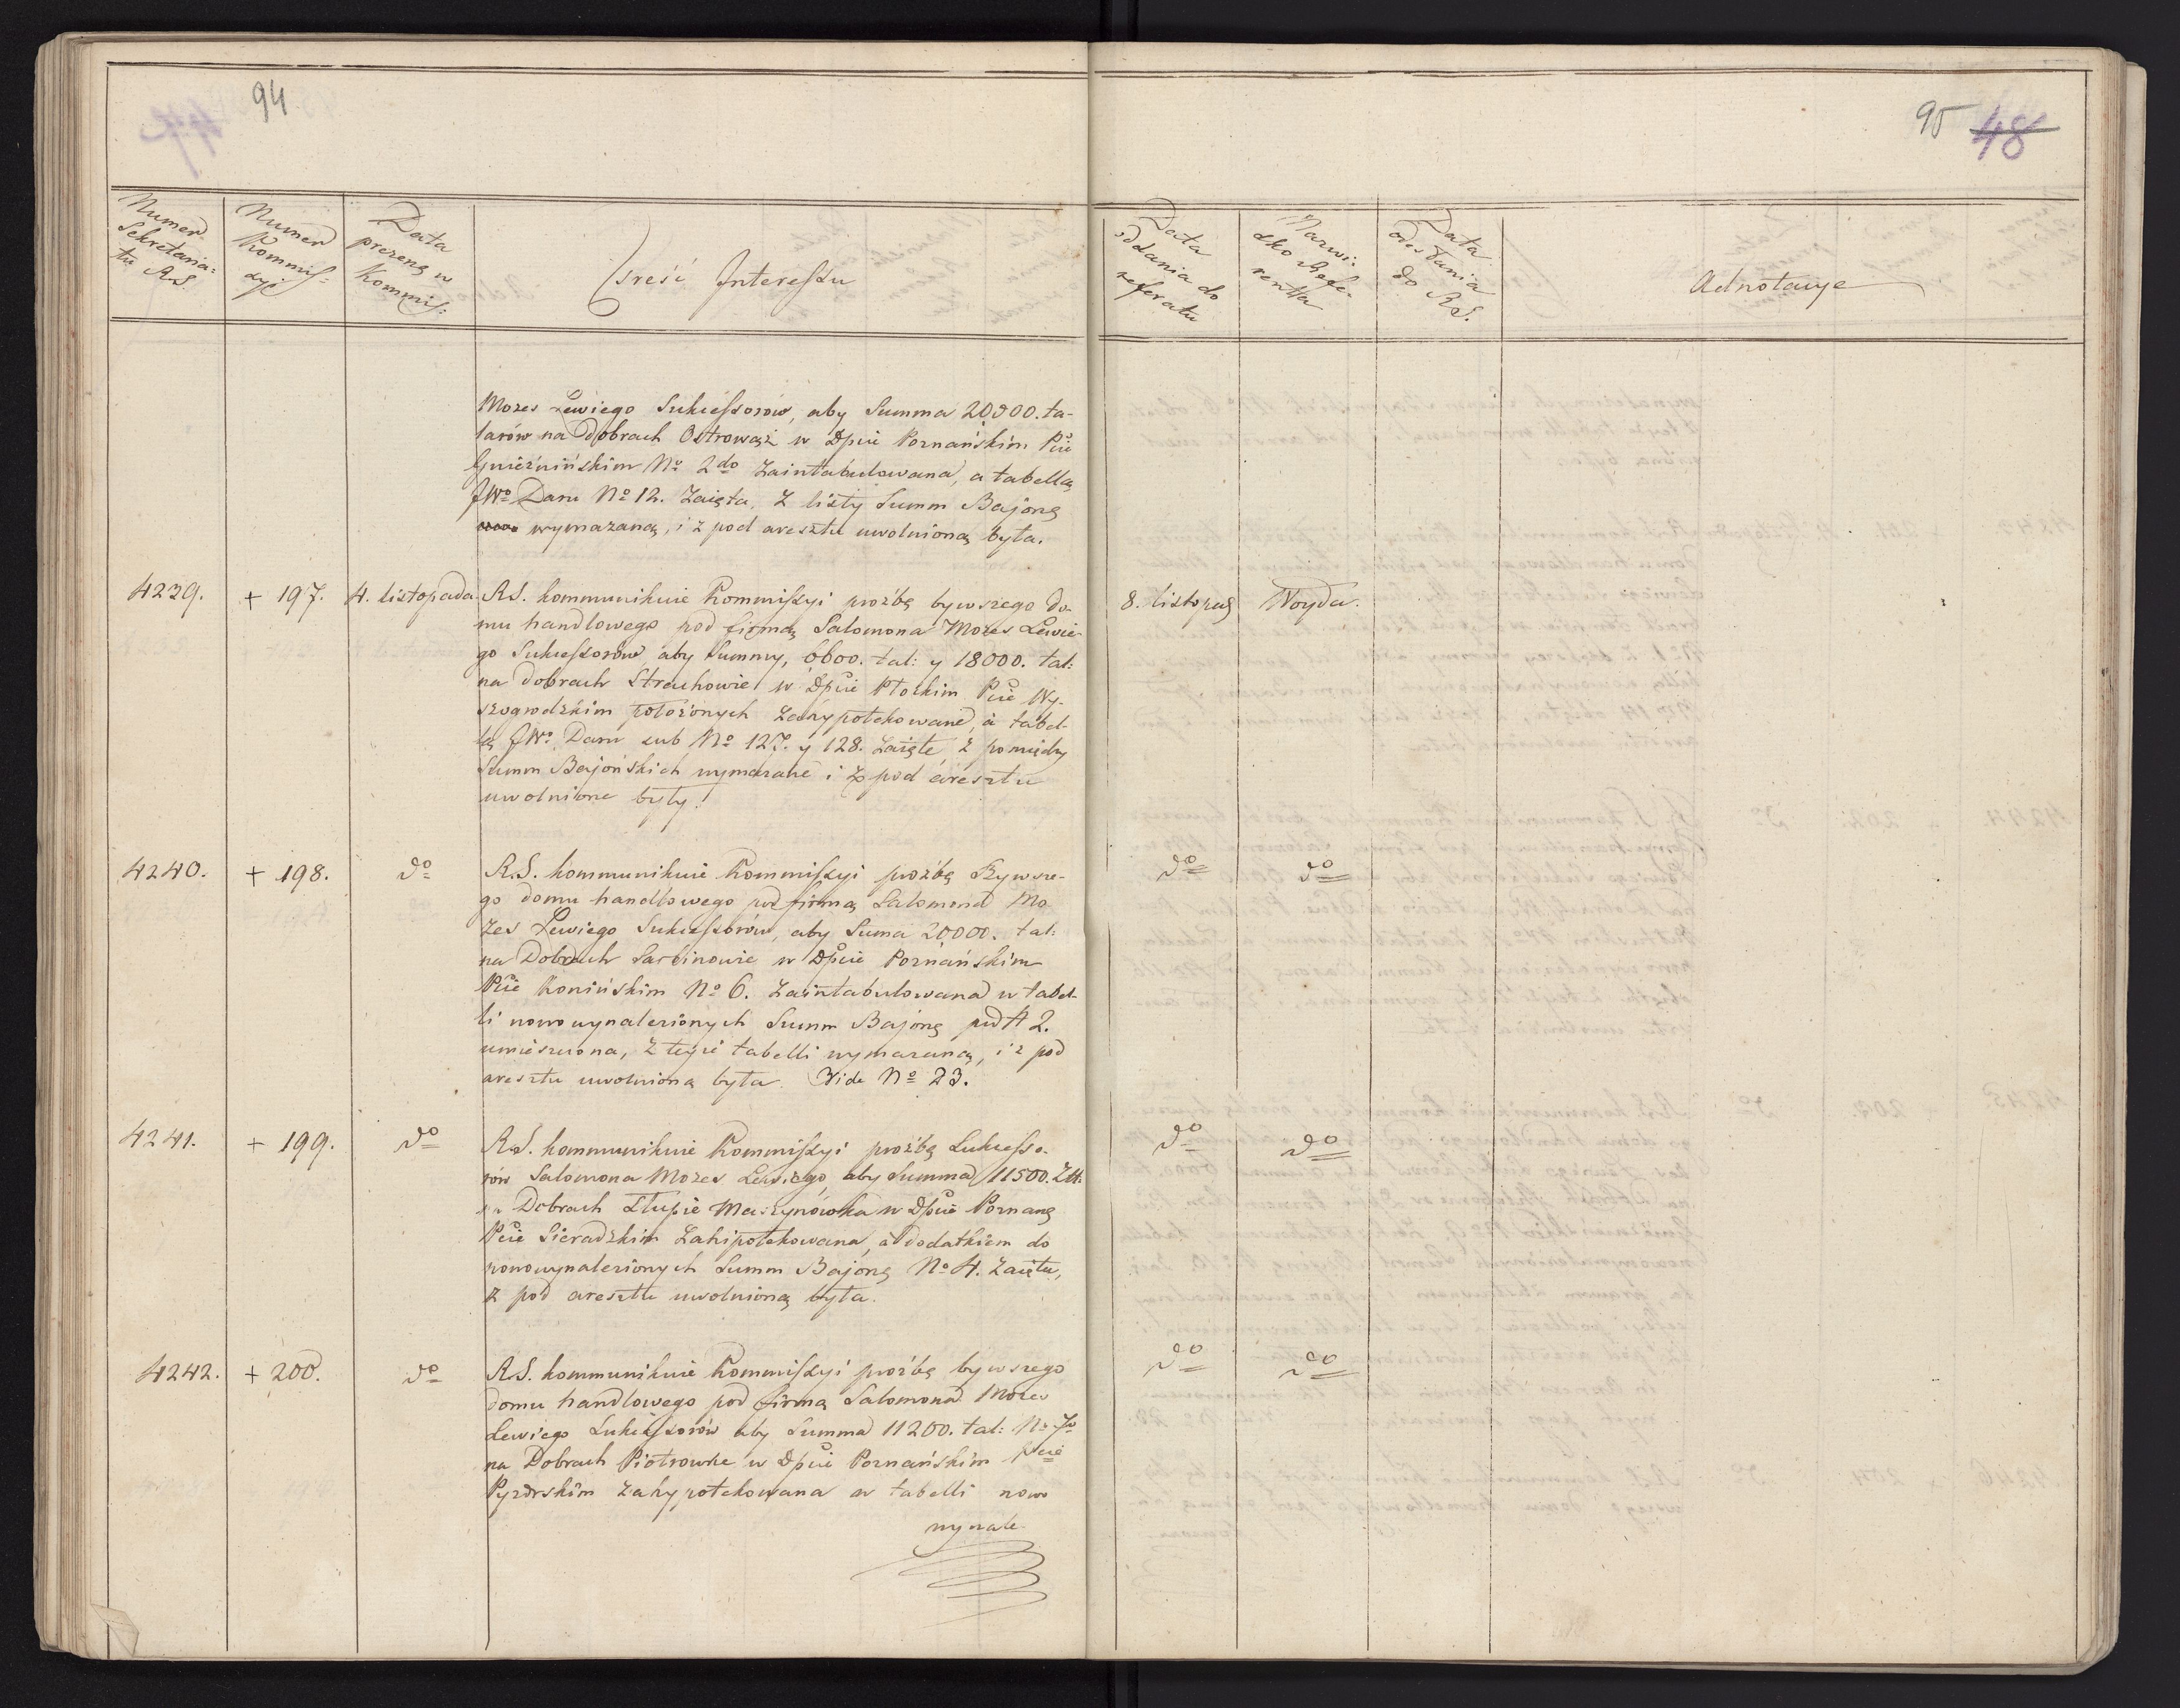 94
95 48
Numer Sekretaria=tu RS.
Numer Kommis=syi
Data prezenę w Kommis:
Treść Interessu
Data oddania do referatu
Nazwi=sko Refe=renta
Data odesłania do RS.
Adnotacye
Mozes Lewiego Sukcessorów, aby Summa 20,000. ta-
larów na Dobrach Ostrowąż w Dpcie Poznańskim Pcie
Gnieźnińskim No 2do zaintabulowana, a tabellą
JWo Daru No 12. Zaięta, z listy Summ Bajonę
wymazaną, i z pod aresztu uwolnioną była.
4239. + 197. 4. listopada. RS. kommunikuie Kommissyi prożbę bywszego do-
mu handlowego pod firmą Salomona Mozes Lewie-
go Sukcessorów aby Summy, 6600. tal: y 18000. tal:
na dobrach Strachowie w Dpcie Płockim Pcie Wy-
szogrodzkim położonych zahypotekowane, a tabel-
lą JWo Daru sub No 127. y 128. zaięte, z pomiędzy
Summ Bajońskich wymazane i z pod aresztu
uwolnione były.
8. listopaę Woyda.
4240. + 198. do RS. kommunikuie Kommissyi prożbę Bywsze-
go domu handlowego pod firmą Salomona Mo-
zes Lewiego Sukcessorów, aby Suma 20000. tal:
na Dobrach Sarbinowie w Dpcie Poznańskim
Pcie Konińskim No 6. Zaintabulowana w tabel-
li nowowynalezionych Summ Bajonę pod # 2.
umieszczona, z teyże tabelli wymazaną, i z pod
aresztu uwolnioną była. Vide No 23.
do do
4241. + 199. do RS. kommunikuie Kommissyi prożbę Sukcesso-
rów Salomona Mozes Lewiego, aby Summa 11500. Ztt:
na Dobrach Słupie Maszynówka w Dpcie Poznanę
Pcie Sieradzkim Zahipotekowana, a dodatkiem do
nowowynalezionych Summ Bajonę No 4. Zaięta,
z pod aresztu uwolnioną była.
do do
4242. + 200. do RS. kommunikuie Kommissyi prożbę bywszego
domu handlowego pod firmą Salomona Mozes
Lewiego Sukcessorów aby Summa 11200. tal: No 7o
na Dobrach Piotrowice w Dpcie Poznańskim Pcie
Pyzdrskim zahypotekowana w tabelli nowo
wynale-
do do